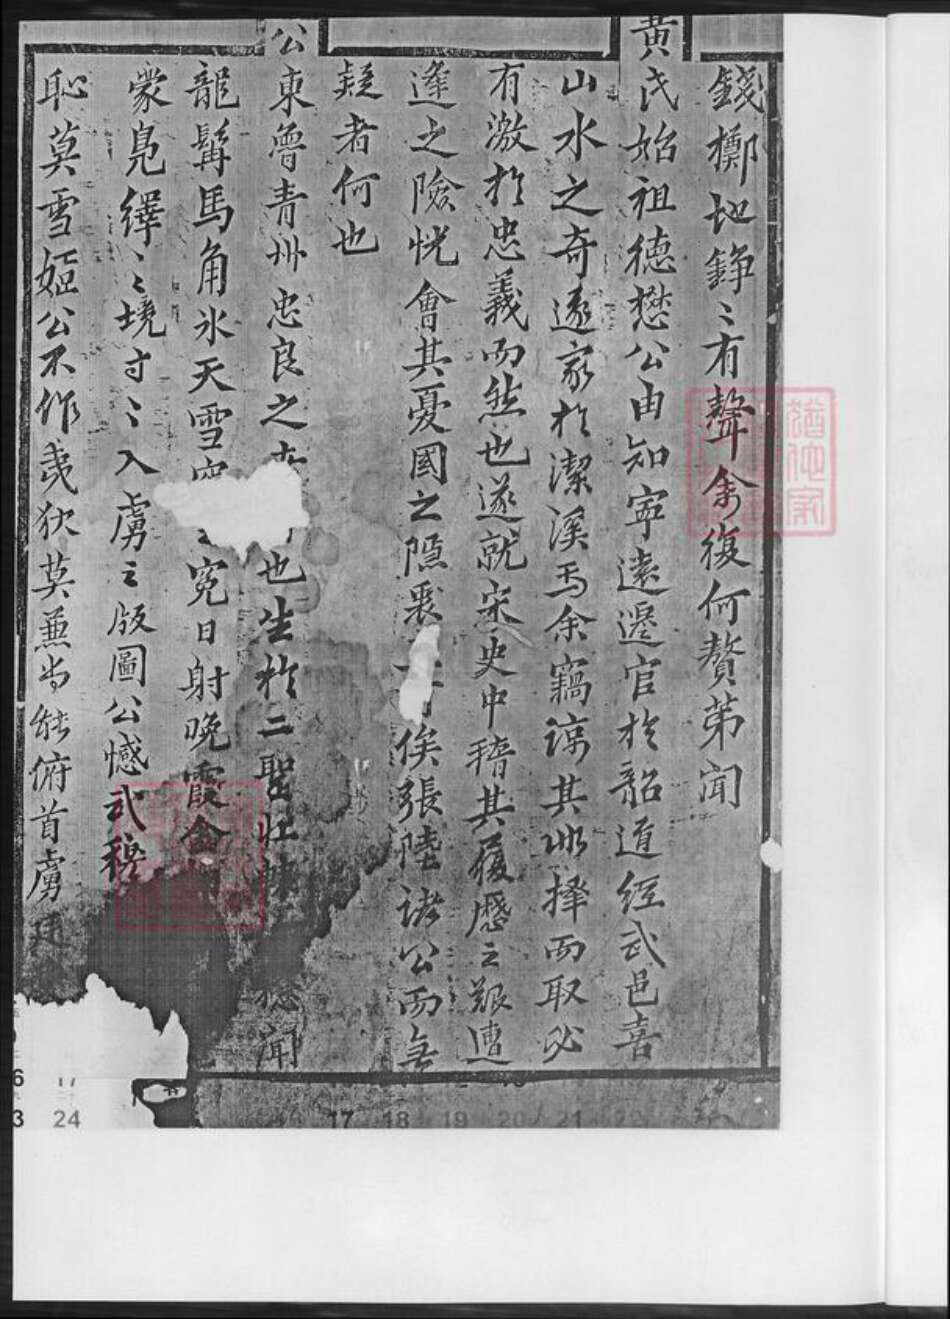 錢擲地錚〻有聲余復何贅第聞
黃氏始祖德懋公由知寧遠遷官於韶道經武邑喜
山水之奇遂家於潔溪焉余竊諒其此擇而取必
有激於忠義而然也遂就宋史中稽其履歷之艱遭
逢之險恍會其憂國之隱衷俟張陸諸公而無
疑者何也
公東魯青州忠良之也生於二聖聞
龍髯馬角氷天雪冤日射晚霞
蒙鳧繹〻境寸〻入虜之版圖公憾武穆
恥莫雪姬公不作戎狄莫兼尚能俯首虜廷
6 17
3 24 17 18 19 20 21 22